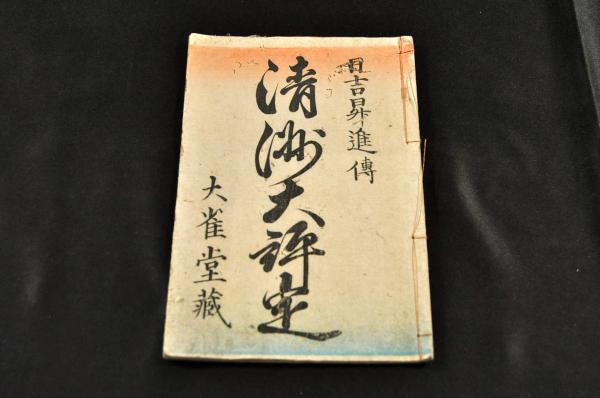 日吉昇進傳
清洲大評定
大雀堂藏